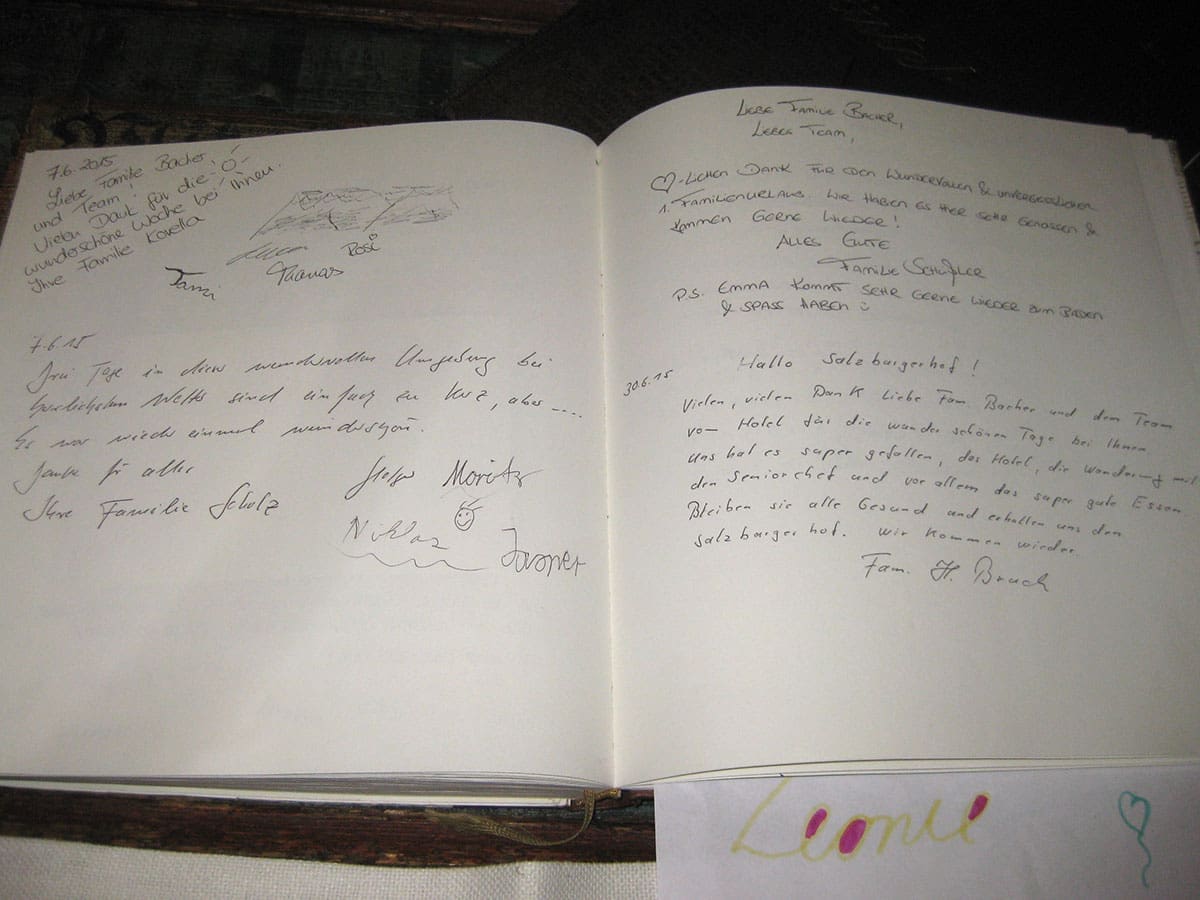 7.6.2015
Liebe Familie Bacher,
und Team!
Vielen Dank für die
wunderschöne Woche bei Ihnen.
Ihre Familie Kovella
Thomas Rosi
7.6.15
Drei Tage in dieser wundervollen Umgebung bei
herrlichstem Wetter sind einfach zu kurz, aber ....
Es war wieder einmal wunderschön.
Danke für alles
Ihre Familie Scholz
Moritz
Niklas
Liebe Familie Bacher,
Liebes Team,
♡-lichen Dank für den wundervollen & unvergesslichen
1. Familienurlaub. Wir haben es hier sehr genossen &
kommen gerne wieder!
Alles Gute
Familie
P.S. Emma kommt sehr gerne wieder zum Baden
& Spass haben
30.6.15
Hallo Salzburgerhof!
Vielen, vielen Dank Liebe Fam. Bacher und dem Team
vom Hotel für die wunder schönen Tage bei Ihnen
uns hat es super gefallen, das Hotel, die Wanderung mit
den Seniorchef und vor allem das super gute Essen.
Bleiben sie alle Gesund und erhalten uns den
Salzburger hof. wir kommen wieder
Fam. H. Bruch
Leonie